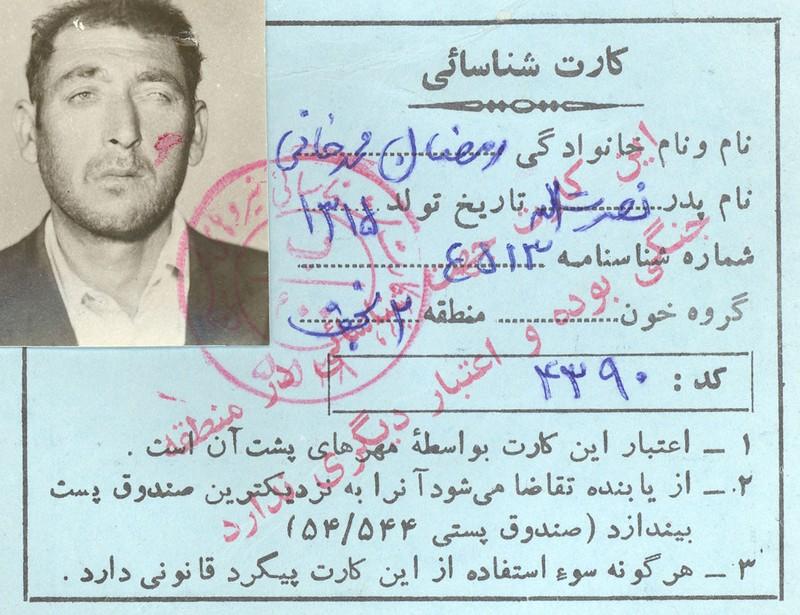 کارت شناسائی
نام ونام خانوادگی رمضان
نام پدر نصرت اله تاریخ تولد ۱۳۱۵
شماره شناسنامه
گروه خون منطقه ۲ نجف
کد : ۴۳۹۰
۱ ـ اعتبار این کارت بواسطهٔ مهرهای پشت آن است .
۲ ـ از یابنده تقاضا می‌شود آنرا به نزدیکترین صندوق پست
بیندازد (صندوق پستی ۵۴/۵۴۴)
۳ ـ هرگونه سوء استفاده از این کارت پیگرد قانونی دارد .
این کارت جهت شناسائی در منطقه
جنگی بوده و اعتبار دیگری ندارد